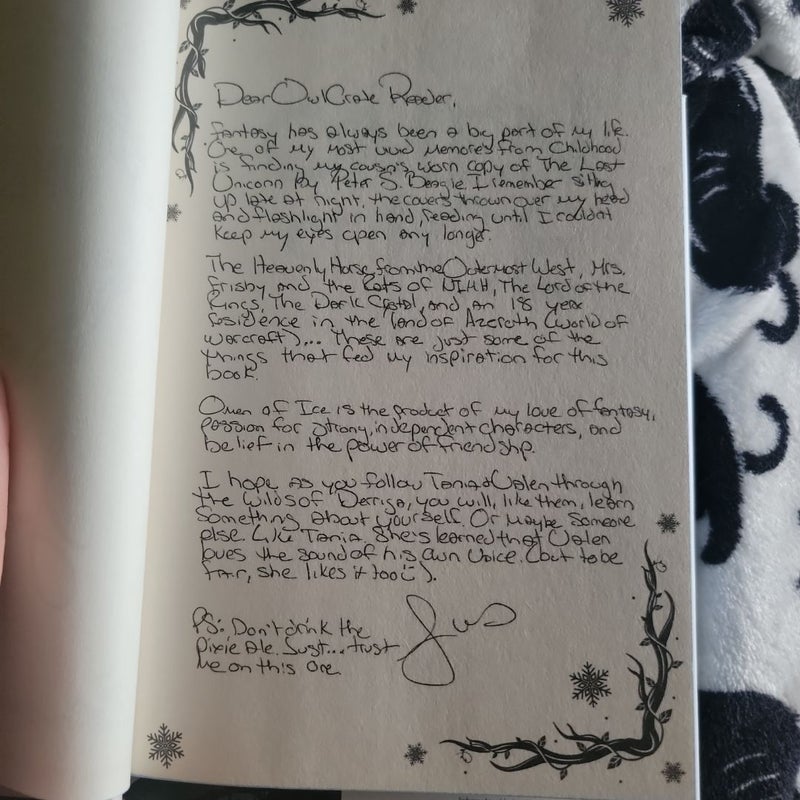 Dear OwlCrate Reader,
Fantasy has always been a big part of my life.
One of my most vivid memories from Childhood
is finding my cousin's worn copy of The Last
Unicorn By Peter S. Beagle. I remember sitting
up late at night, the covers thrown over my head
and flashlight in hand, reading until I couldn't
keep my eyes open any longer.
The Heavenly Horse from the Outermost West, Mrs.
Frisby and the Rats of NIMH, The Lord of the
Rings, The Dark Crystal, and an 18 year
residence in the land of Azeroth (World of
Warcraft)... These are just some of the
things that fed my inspiration for this
book.
Omen of Ice is the product of my love of fantasy,
passion for strong, independent characters, and
belief in the power of friendship.
I hope as you follow Tania & Valen through
the wilds of Derriga, you will, like them, learn
something about yourself. Or maybe someone
else. Like Tania. She's learned that Valen
loves the sound of his own voice. (but to be
fair, she likes it too :) ).
PS: Don't drink the
Pixie Ale. Just... trust
me on this one.
Jus